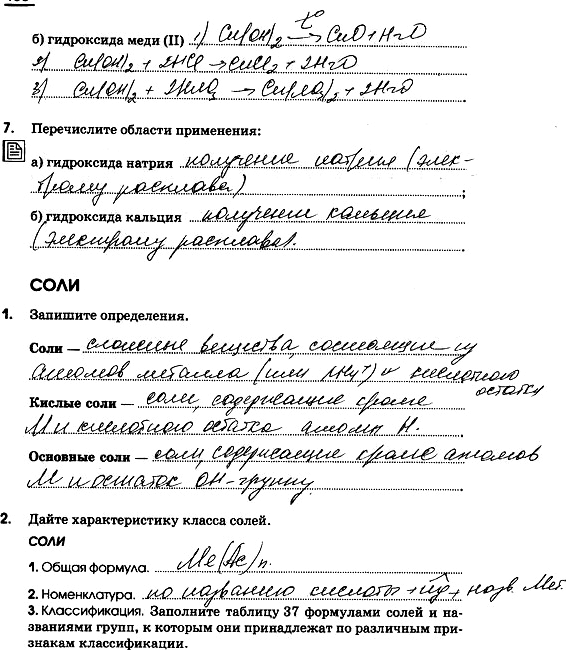 б) гидроксида меди (II) 1) Cu(OH)₂ →t° CuO + H₂O
2) Cu(OH)₂ + 2HCl → CuCl₂ + 2H₂O
3) Cu(OH)₂ + 2HNO₃ → Cu(NO₃)₂ + 2H₂O
7. Перечислите области применения:
а) гидроксида натрия получение натрия (элек-
тролиз расплава) ;
б) гидроксида кальция получение кальция
(электролиз расплава).
СОЛИ
1. Запишите определения.
Соли — сложные вещества, состоящие из
атомов металла (или NH₄⁺) и кислотного
остатка
Кислые соли — соли, содержащие кроме
М и кислотного остатка атомы H.
Основные соли — соли, содержащие кроме атомов
М и остаток OH-группу.
2. Дайте характеристику класса солей.
СОЛИ
1. Общая формула. Me(Ac)n.
2. Номенклатура. по названию кислоты + ид + назв. Мет.
3. Классификация. Заполните таблицу 37 формулами солей и на-
званиями групп, к которым они принадлежат по различным при-
знакам классификации.